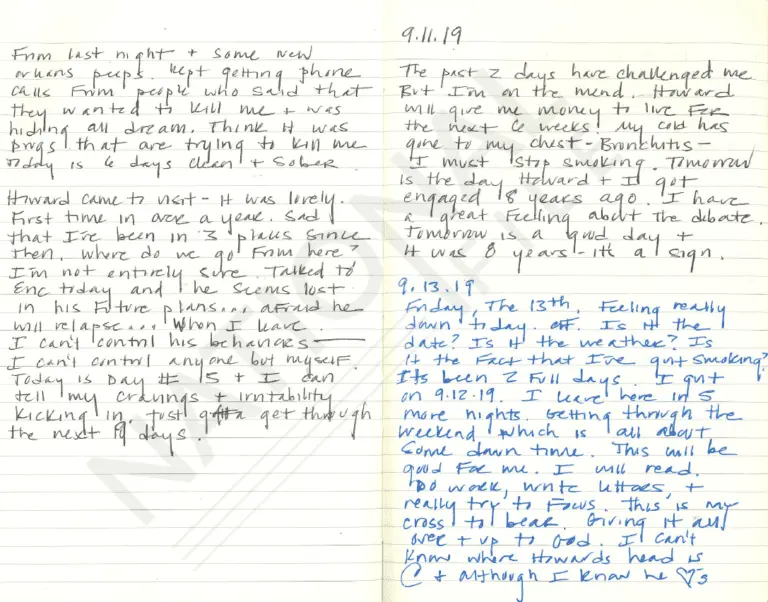 From last night + some new
orleans peeps. Kept getting phone
calls from people who said that
they wanted to kill me + was
hiding all dream. Think it was
drugs that are trying to kill me
Today is 6 days clean + sober
Howard came to visit - it was lovely.
First time in over a year. Sad
that I've been in 3 places since
then. Where do we go from here?
I'm not entirely sure. Talked to
Eric today and he seems lost
in his future plans... afraid he
will relapse... When I leave
I can't control his behaviors
I can't control anyone but myself.
Today is Day # 15 + I can
tell my cravings + irritability
kicking in. Just gotta get through
the next 19 days.
9.11.19
The past 2 days have challenged me
But I'm on the mend. Howard
will give me money to live for
the next 6 weeks! My cold has
gone to my chest - Bronchitis -
I must stop smoking. Tomorrow
is the day Howard + I got
engaged 8 years ago. I have
a great feeling about the debate.
Tomorrow is a good day +
it was 8 years - it's a sign.
9.13.19
Friday, The 13th, Feeling really
down today. Is it the
date? Is it the weather? Is
it the fact that I've quit smoking?
It's been 2 full days. I quit
on 9.12.19. I leave here in 5
more nights. Getting through the
weekend which is all about
some down time. This will be
good for me. I will read.
Do work, write letters, +
really try to focus. This is my
cross to bear. Giving it all
over + up to God. I can't
know where Howards head is
@ + although I know he ♡'s
NATIONAL